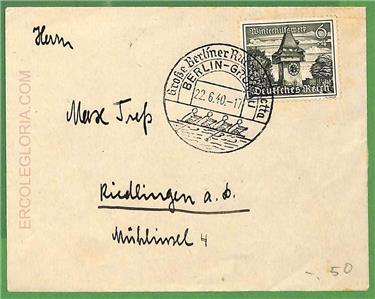 Herrn
Max Treß
Riedlingen a. D.
Mühlinsel 4
Große Berliner Ruder-Regatta
BERLIN-GRÜNAU
22.6.40.-17
Winterhilfswerk
6
Deutsches Reich
ERCOLEGLORIA.COM
-.50